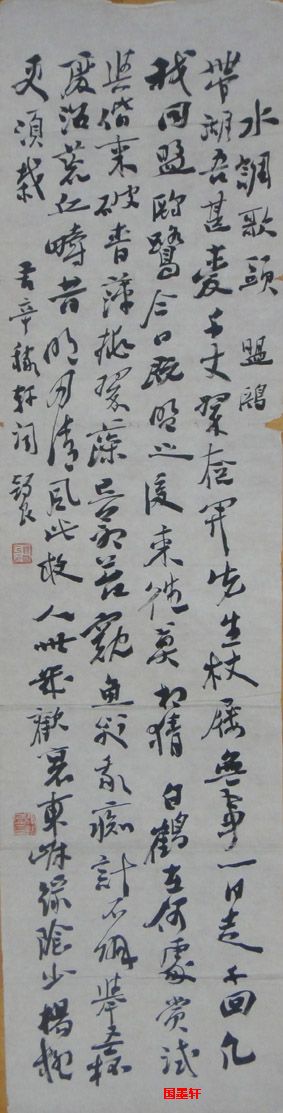 水調歌頭 盟鷗
帶湖吾甚愛千丈翠奩開先生杖屨無事一日走千回凡
我同盟鷗鷺今日既盟之後來往莫相猜白鶴在何處嘗試
與偕來破青萍排翠藻立蒼苔窺魚笑汝痴計不解舉吾杯
廢沼荒丘疇昔明月清風此夜人世幾歡哀東岸綠陰少楊柳
更須栽 書辛稼軒詞
国墨轩